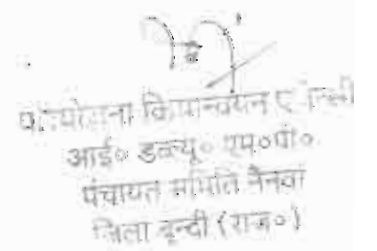 परियोजना क्रियान्वयन एजेन्सी
आई० डब्ल्यू० एम०पी०
पंचायत समिति नैनवां
जिला बून्दी (राज०)